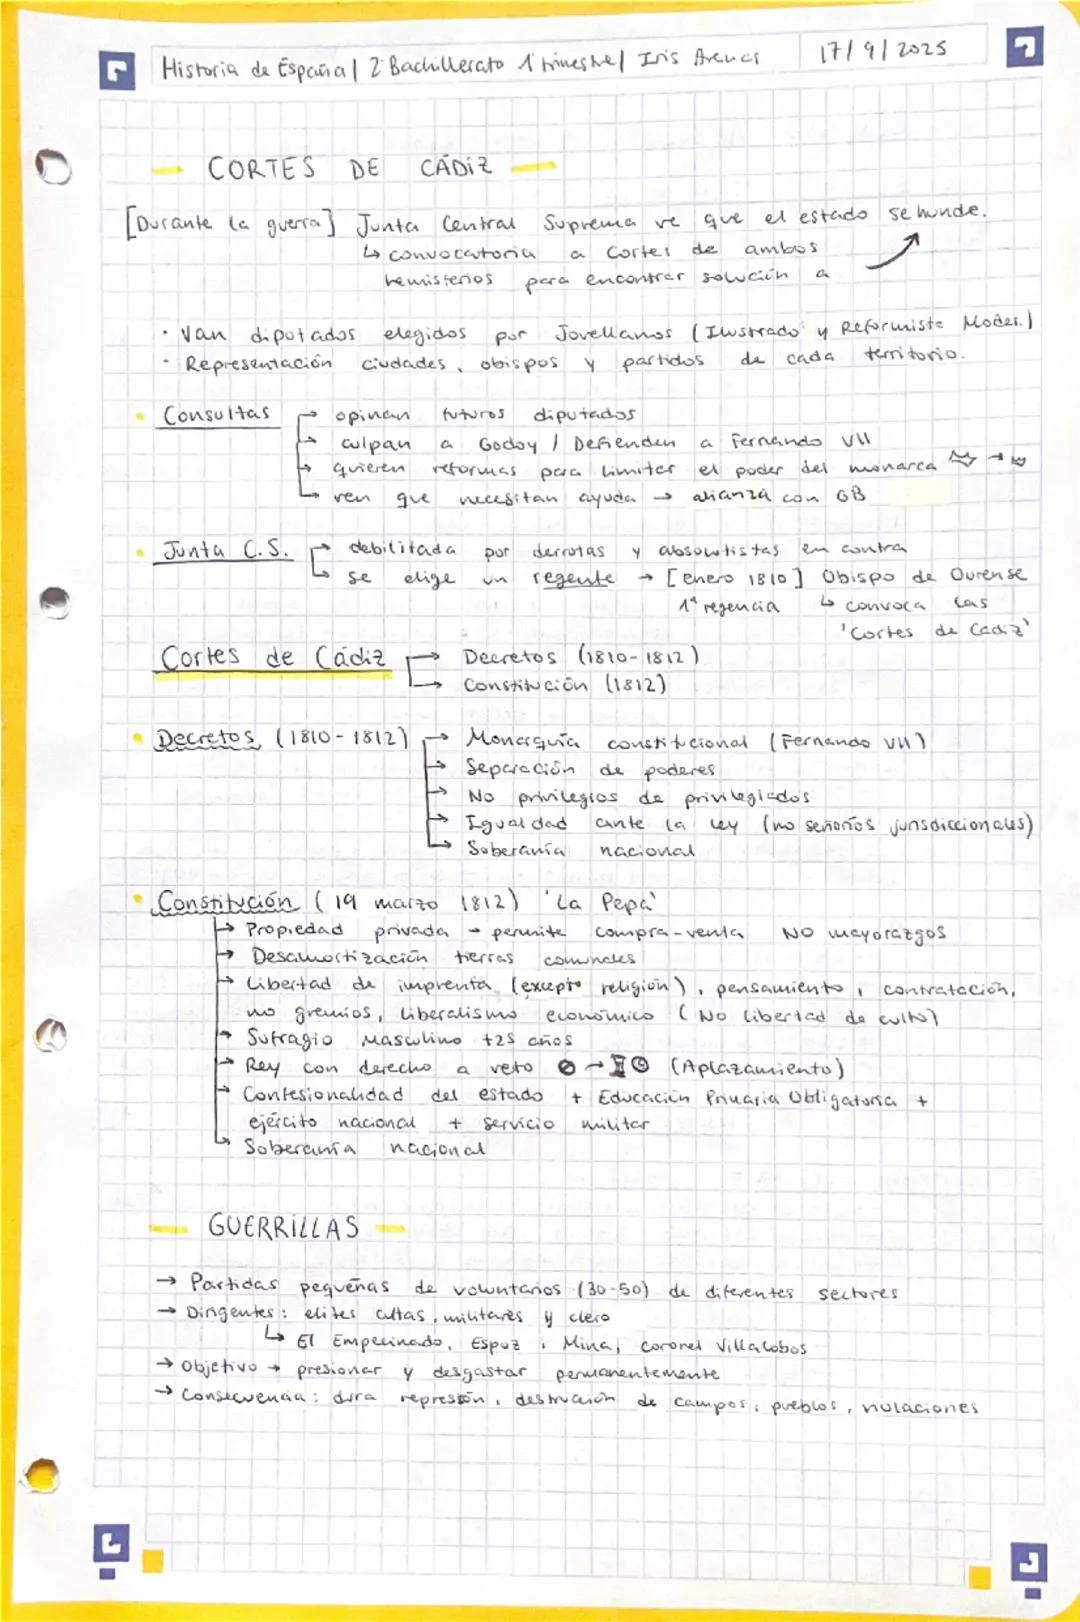 Historia de España | 2º Bachillerato 1º trimestre | Iris Arenas 17/9/2025
CORTES DE CÁDIZ
[Durante la guerra] Junta Central Suprema ve que el estado se hunde.
↳ convocatoria a Cortes de ambos
hemisferios para encontrar solución a
· Van diputados elegidos por Jovellanos (Ilustrado y Reformista Moder.)
· Representación ciudades, obispos y partidos de cada territorio.
• Consultas → opinan futuros diputados
→ culpan a Godoy / Defienden a Fernando VII
→ quieren reformas para limitar el poder del monarca →
→ ven que necesitan ayuda → alianza con GB
• Junta C.S. → debilitada por derrotas y absolutistas en contra
→ se elige un regente → [enero 1810] Obispo de Ourense
1ª regencia ↳ convoca las
'Cortes de Cádiz'
Cortes de Cádiz → Decretos (1810-1812)
→ Constitución (1812)
• Decretos (1810-1812) → Monarquía constitucional (Fernando VII)
→ Separación de poderes
→ No privilegios de privilegiados
→ Igualdad ante la ley (no señoríos jurisdiccionales)
→ Soberanía nacional
• Constitución (19 marzo 1812) 'La Pepa'
→ Propiedad privada → permite compra-venta NO mayorazgos
→ Desamortización tierras comunales
→ Libertad de imprenta (excepto religión), pensamiento, contratación,
no gremios, liberalismo económico (No libertad de culto)
→ Sufragio Masculino +25 años
→ Rey con derecho a veto → (Aplazamiento)
→ Confesionalidad del estado + Educación Primaria Obligatoria +
ejército nacional + servicio militar
→ Soberanía nacional
GUERRILLAS
→ Partidas pequeñas de voluntarios (30-50) de diferentes sectores
→ Dirigentes: elites cultas, militares y clero
↳ El Empecinado, Espoz i Mina, coronel Villalobos
→ Objetivo → presionar y desgastar permanentemente
→ Consecuencia: dura represión, destrucción de campos, pueblos, violaciones